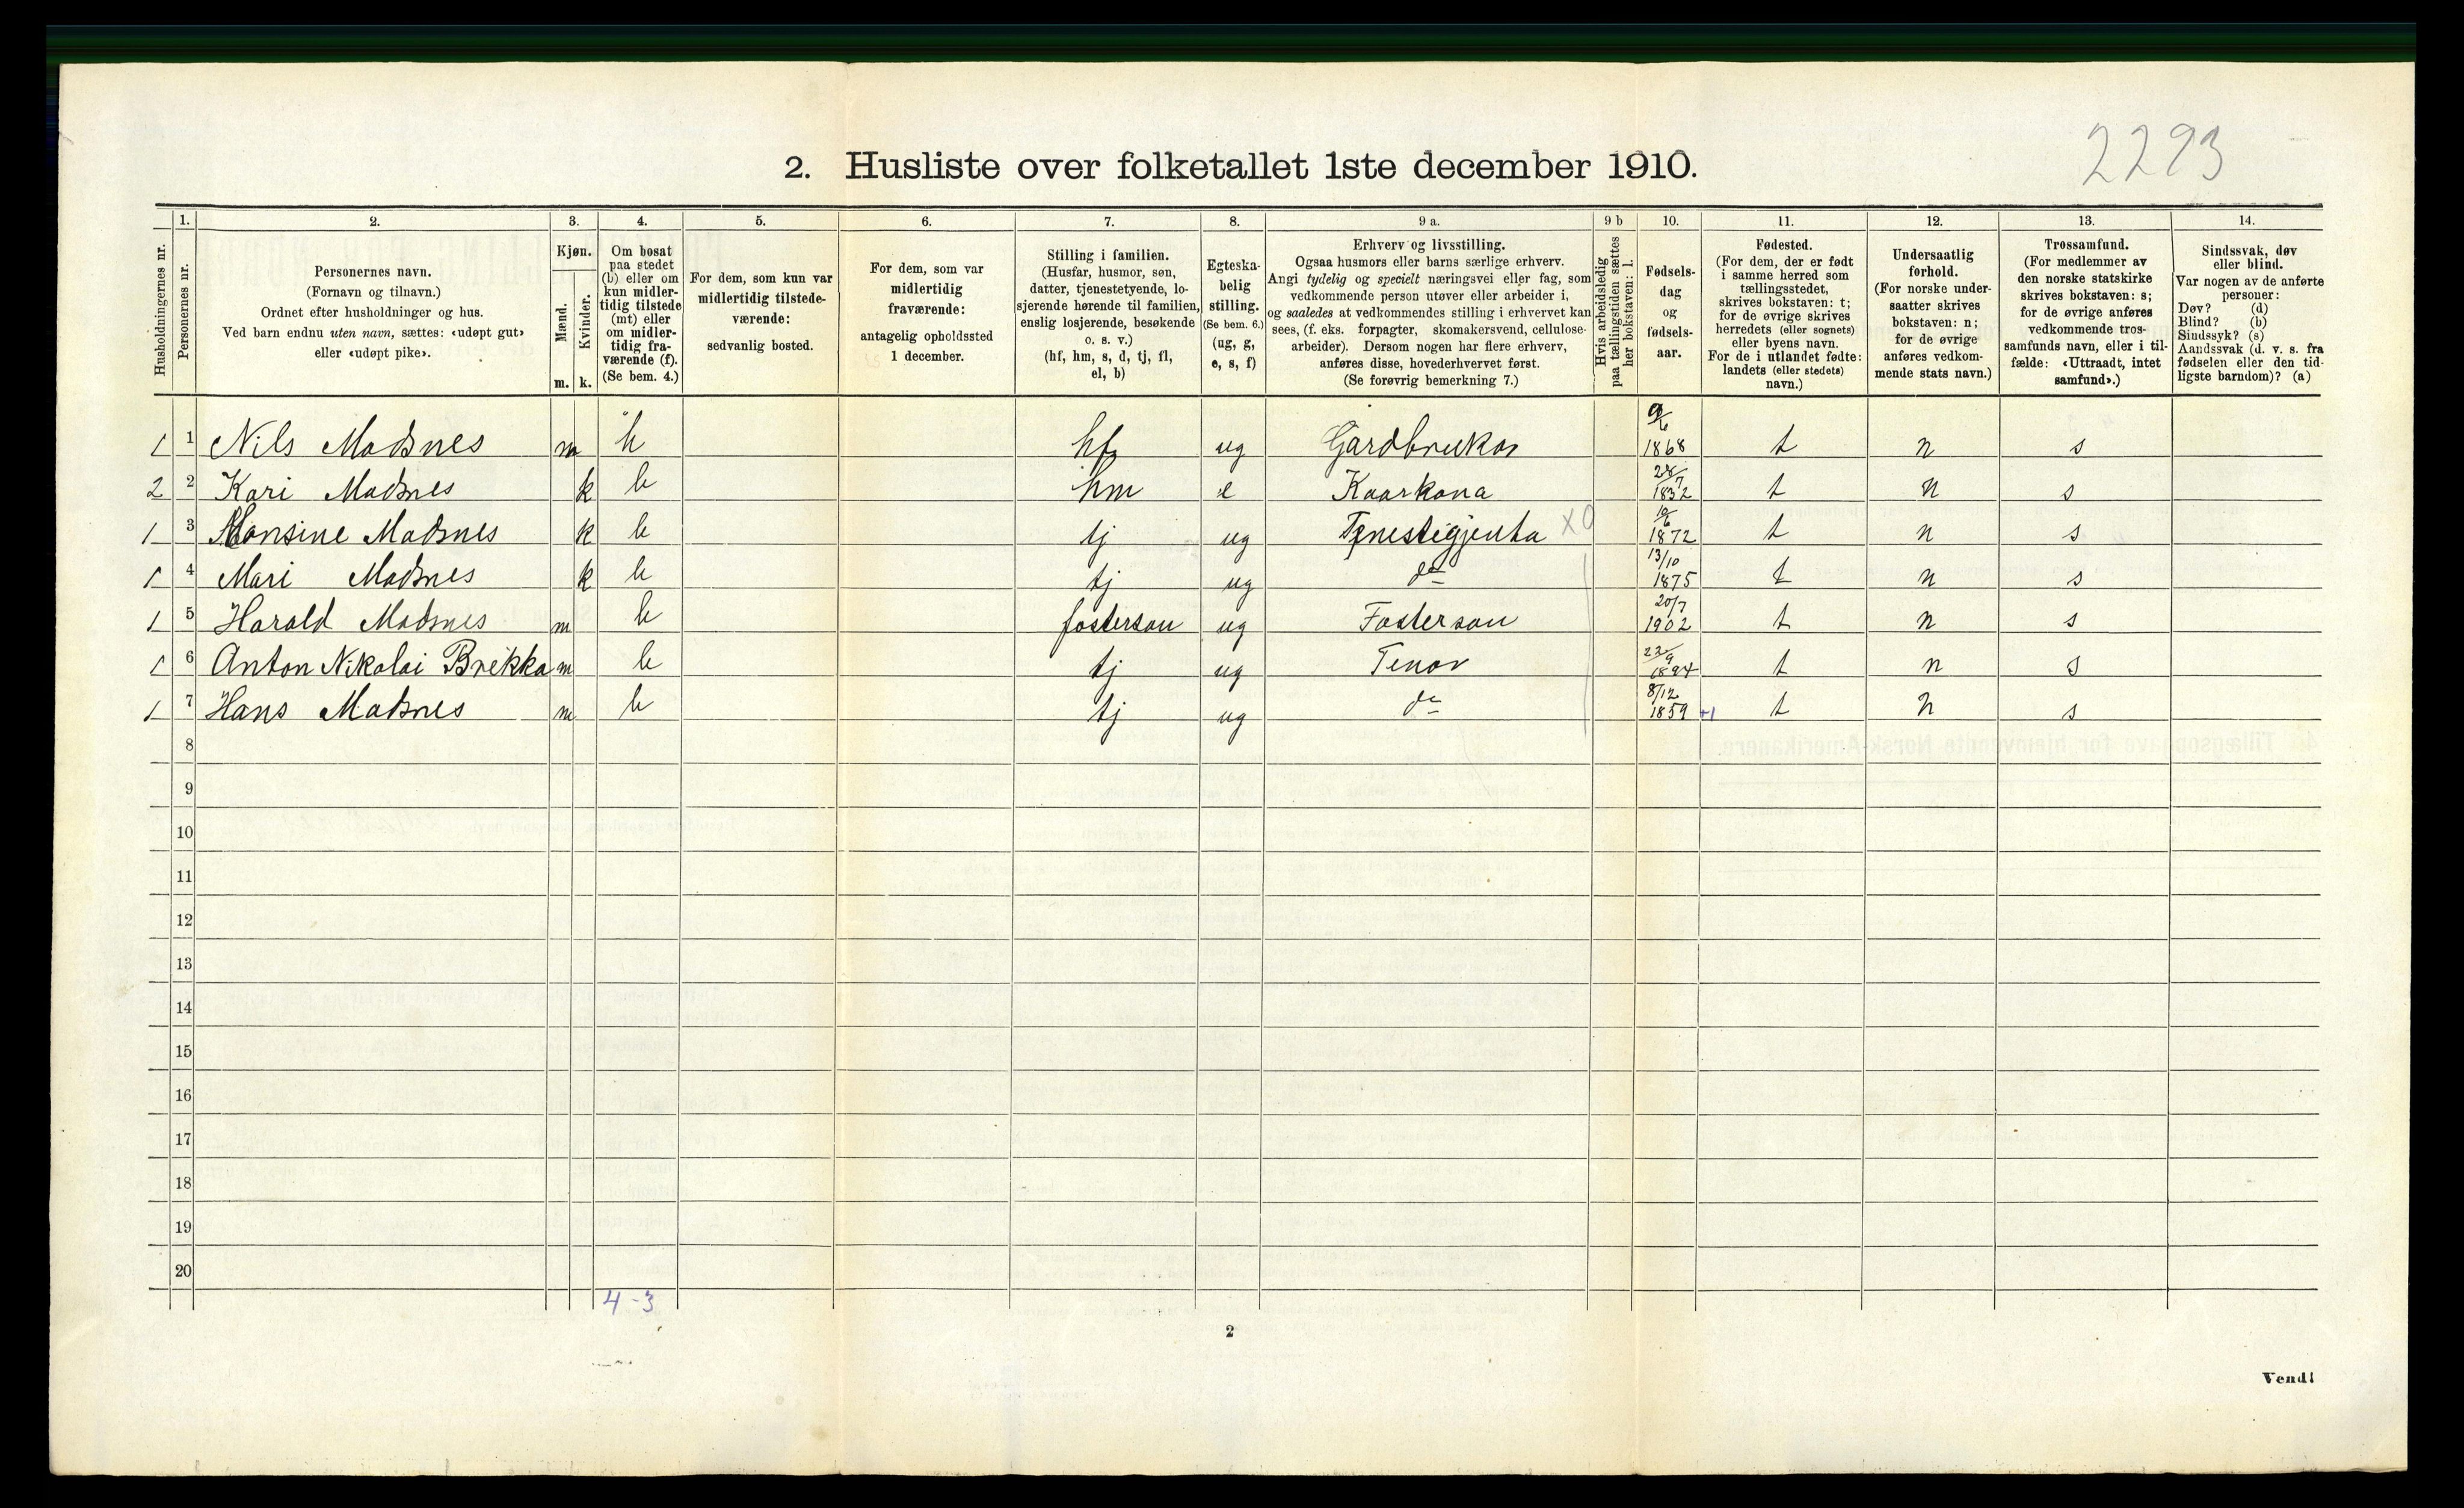 2293
2. Husliste over folketallet 1ste december 1910.
1. 2. 3. 4. 5. 6. 7. 8. 9 a. 9 b 10. 11. 12. 13. 14.
Husholdningernes nr.
Personernes nr.
Personernes navn.
(Fornavn og tilnavn.)
Ordnet efter husholdninger og hus.
Ved barn endnu uten navn, sættes: «udøpt gut»
eller «udøpt pike».
Kjøn.
Mænd.
Kvinder.
m. k.
Om bosat
paa stedet
(b) eller om
kun midler-
tidig tilstede
(mt) eller
om midler-
tidig fra-
værende (f).
(Se bem. 4.)
For dem, som kun var
midlertidig tilstede-
værende:
sedvanlig bosted.
For dem, som var
midlertidig
fraværende:
antagelig opholdssted
1 december.
Stilling i familien.
(Husfar, husmor, søn,
datter, tjenestetyende, lo-
sjerende hørende til familien,
enslig losjerende, besøkende
o. s. v.)
(hf, hm, s, d, tj, fl,
el, b)
Egteska-
belig
stilling.
(Se bem. 6.)
(ug, g,
e, s, f)
Erhverv og livsstilling.
Ogsaa husmors eller barns særlige erhverv.
Angi tydelig og specielt næringsvei eller fag, som
vedkommende person utøver eller arbeider i,
og saaledes at vedkommendes stilling i erhvervet kan
sees, (f. eks. forpagter, skomakersvend, cellulose-
arbeider). Dersom nogen har flere erhverv,
anføres disse, hovederhvervet først.
(Se forøvrig bemerkning 7.)
Hvis arbeidsledig
paa tællingstiden sættes
her bokstaven: l.
Fødsels-
dag
og
fødsels-
aar.
Fødested.
(For dem, der er født
i samme herred som
tællingsstedet,
skrives bokstaven: t;
for de øvrige skrives
herredets (eller sognets)
eller byens navn.
For de i utlandet fødte:
landets (eller stedets)
navn.)
Undersaatlig
forhold.
(For norske under-
saatter skrives
bokstaven: n;
for de øvrige
anføres vedkom-
mende stats navn.)
Trossamfund.
(For medlemmer av
den norske statskirke
skrives bokstaven: s;
for de øvrige anføres
vedkommende tros-
samfunds navn, eller i til-
fælde: «Uttraadt, intet
samfund».)
Sindssvak, døv
eller blind.
Var nogen av de anførte
personer:
Døv? (d)
Blind? (b)
Sindssyk? (s)
Aandssvak (d. v. s. fra
fødselen eller den tid-
ligste barndom)? (a)
1 1 Nils Madsnes m b hf ug Gardbrukar 9/6 1868 t n s
2 2 Kari Madsnes k b hm e Kaarkona 28/7 1832 t n s
1 3 Hansine Madsnes k b tj ug Tenestegjenta X0 10/6 1872 t n s
1 4 Mari Madsnes k b tj ug do 13/10 1875 t n s
1 5 Harald Madsnes m b fosterson ug Fosterson 20/7 1902 t n s
1 6 Anton Nikolai Brekka m b tj ug Tenar 22/9 1894 t n s
1 7 Hans Madsnes m b tj ug do 8/12 1859 +1 t n s
8
9
10
11
12
13
14
15
16
17
18
19
20
4-3
2
Vend!